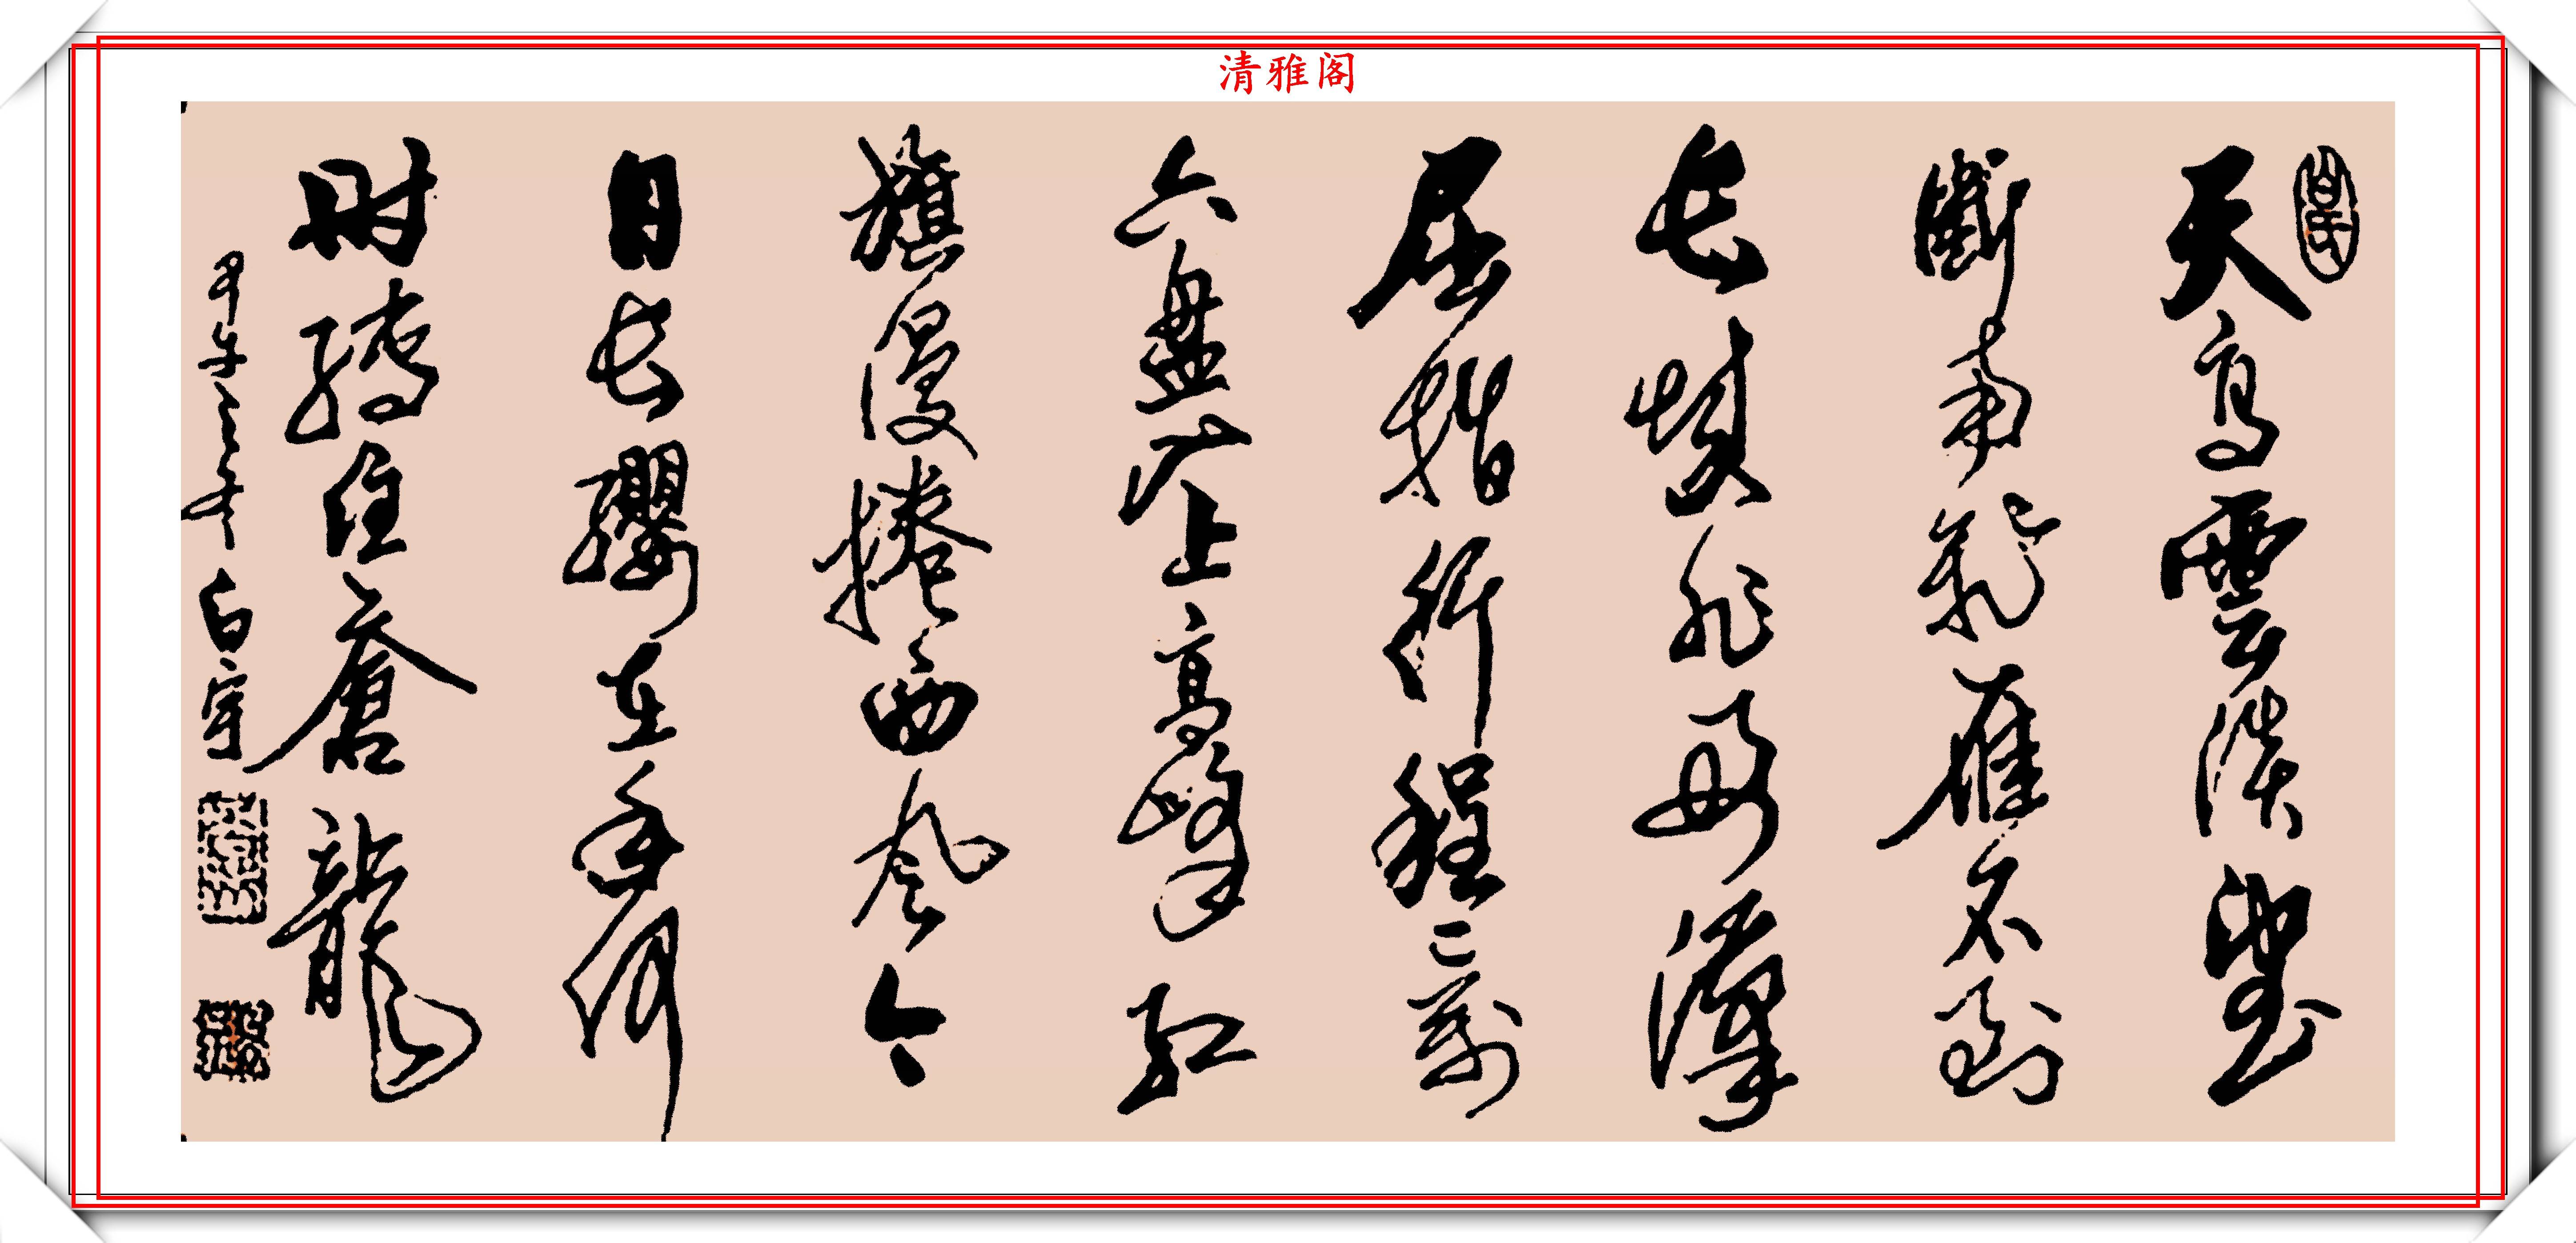 清雅阁
天高雲淡望
斷南飛雁不到
長城非好漢
屈指行程二萬
六盤山上高峰紅
旗漫捲西風今
日長纓在手何
時縛住蒼龍
甲午之